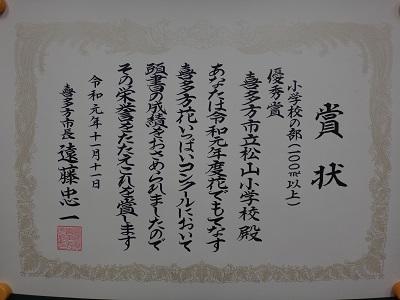 賞状
小学校の部(一〇〇㎡以上)
優秀賞
喜多方市立松山小学校 殿
あなたは令和元年度花でもてなす
喜多方花いっぱいコンクールにおいて
頭書の成績をおさめられましたので
その栄誉をたたえこれを賞します
令和元年十一月十一日
喜多方市長 遠藤忠一